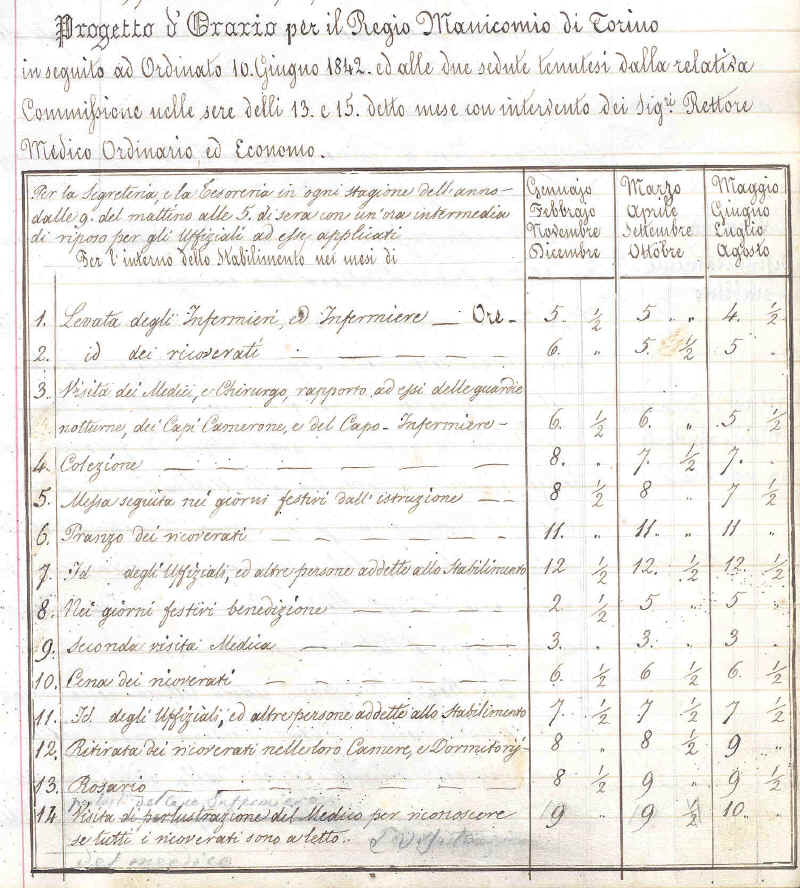 Progetto d'Orario per il Regio Manicomio di Torino
in seguito ad Ordinato 10. Giugno 1842. ed alle due sedute tenutesi dalla relativa
Commissione nelle sere delli 13. e 15. detto mese con intervento dei Sig.ri Rettore
Medico Ordinario, ed Economo.
Per la Segreteria, e la Tesoreria in ogni stagione dell'anno-
dalle 9. del mattino alle 5. di sera con un'ora intermedia
di riposo per gli Uffiziali ad esse applicati
Per l'interno dello Stabilimento nei mesi di
Gennajo
Febbrajo
Novembre
Dicembre
Marzo
Aprile
Settembre
Ottobre
Maggio
Giugno
Luglio
Agosto
1. Levata degli Infermieri, ed Infermiere — Ore - 5. ½ 5 " " 4. ½
2. id dei ricoverati — — — — — 6. " 5. ½ 5 "
3. Visita dei Medici, e Chirurgo, rapporto ad essi delle guardie
notturne, dei Capi Camerone, e del Capo-Infermiere- 6. ½ 6. " 5 ½
4. Colezione — — — — — 8. " 7. ½ 7. "
5. Messa seguita nei giorni festivi dall'istruzione — — 8 ½ 8 " 7 ½
6. Pranzo dei ricoverati — — — — — 11. " 11. " 11 "
7. Id degli Uffiziali, ed altre persone addette allo Stabilimento 12 ½ 12. ½ 12. ½
8. Nei giorni festivi benedizione — — — — 2. ½ 5 " 5 "
9. Seconda visita Medica — — — — — 3. " 3. " 3 "
10. Cena dei ricoverati — — — — — 6. ½ 6 ½ 6. ½
11. Id. degli Uffiziali, ed altre persone addette allo Stabilimento 7. ½ 7 ½ 7 ½
12. Ritirata dei ricoverati nelle loro Camere, e Dormitorj- 8 " 8 ½ 9 "
13. Rosario — — — — — 8 ½ 9 " 9 ½
14 Visita di perlustrazione del Medico per riconoscere 9 " 9 ½ 10. "
se tutti i ricoverati sono a letto..
del medico